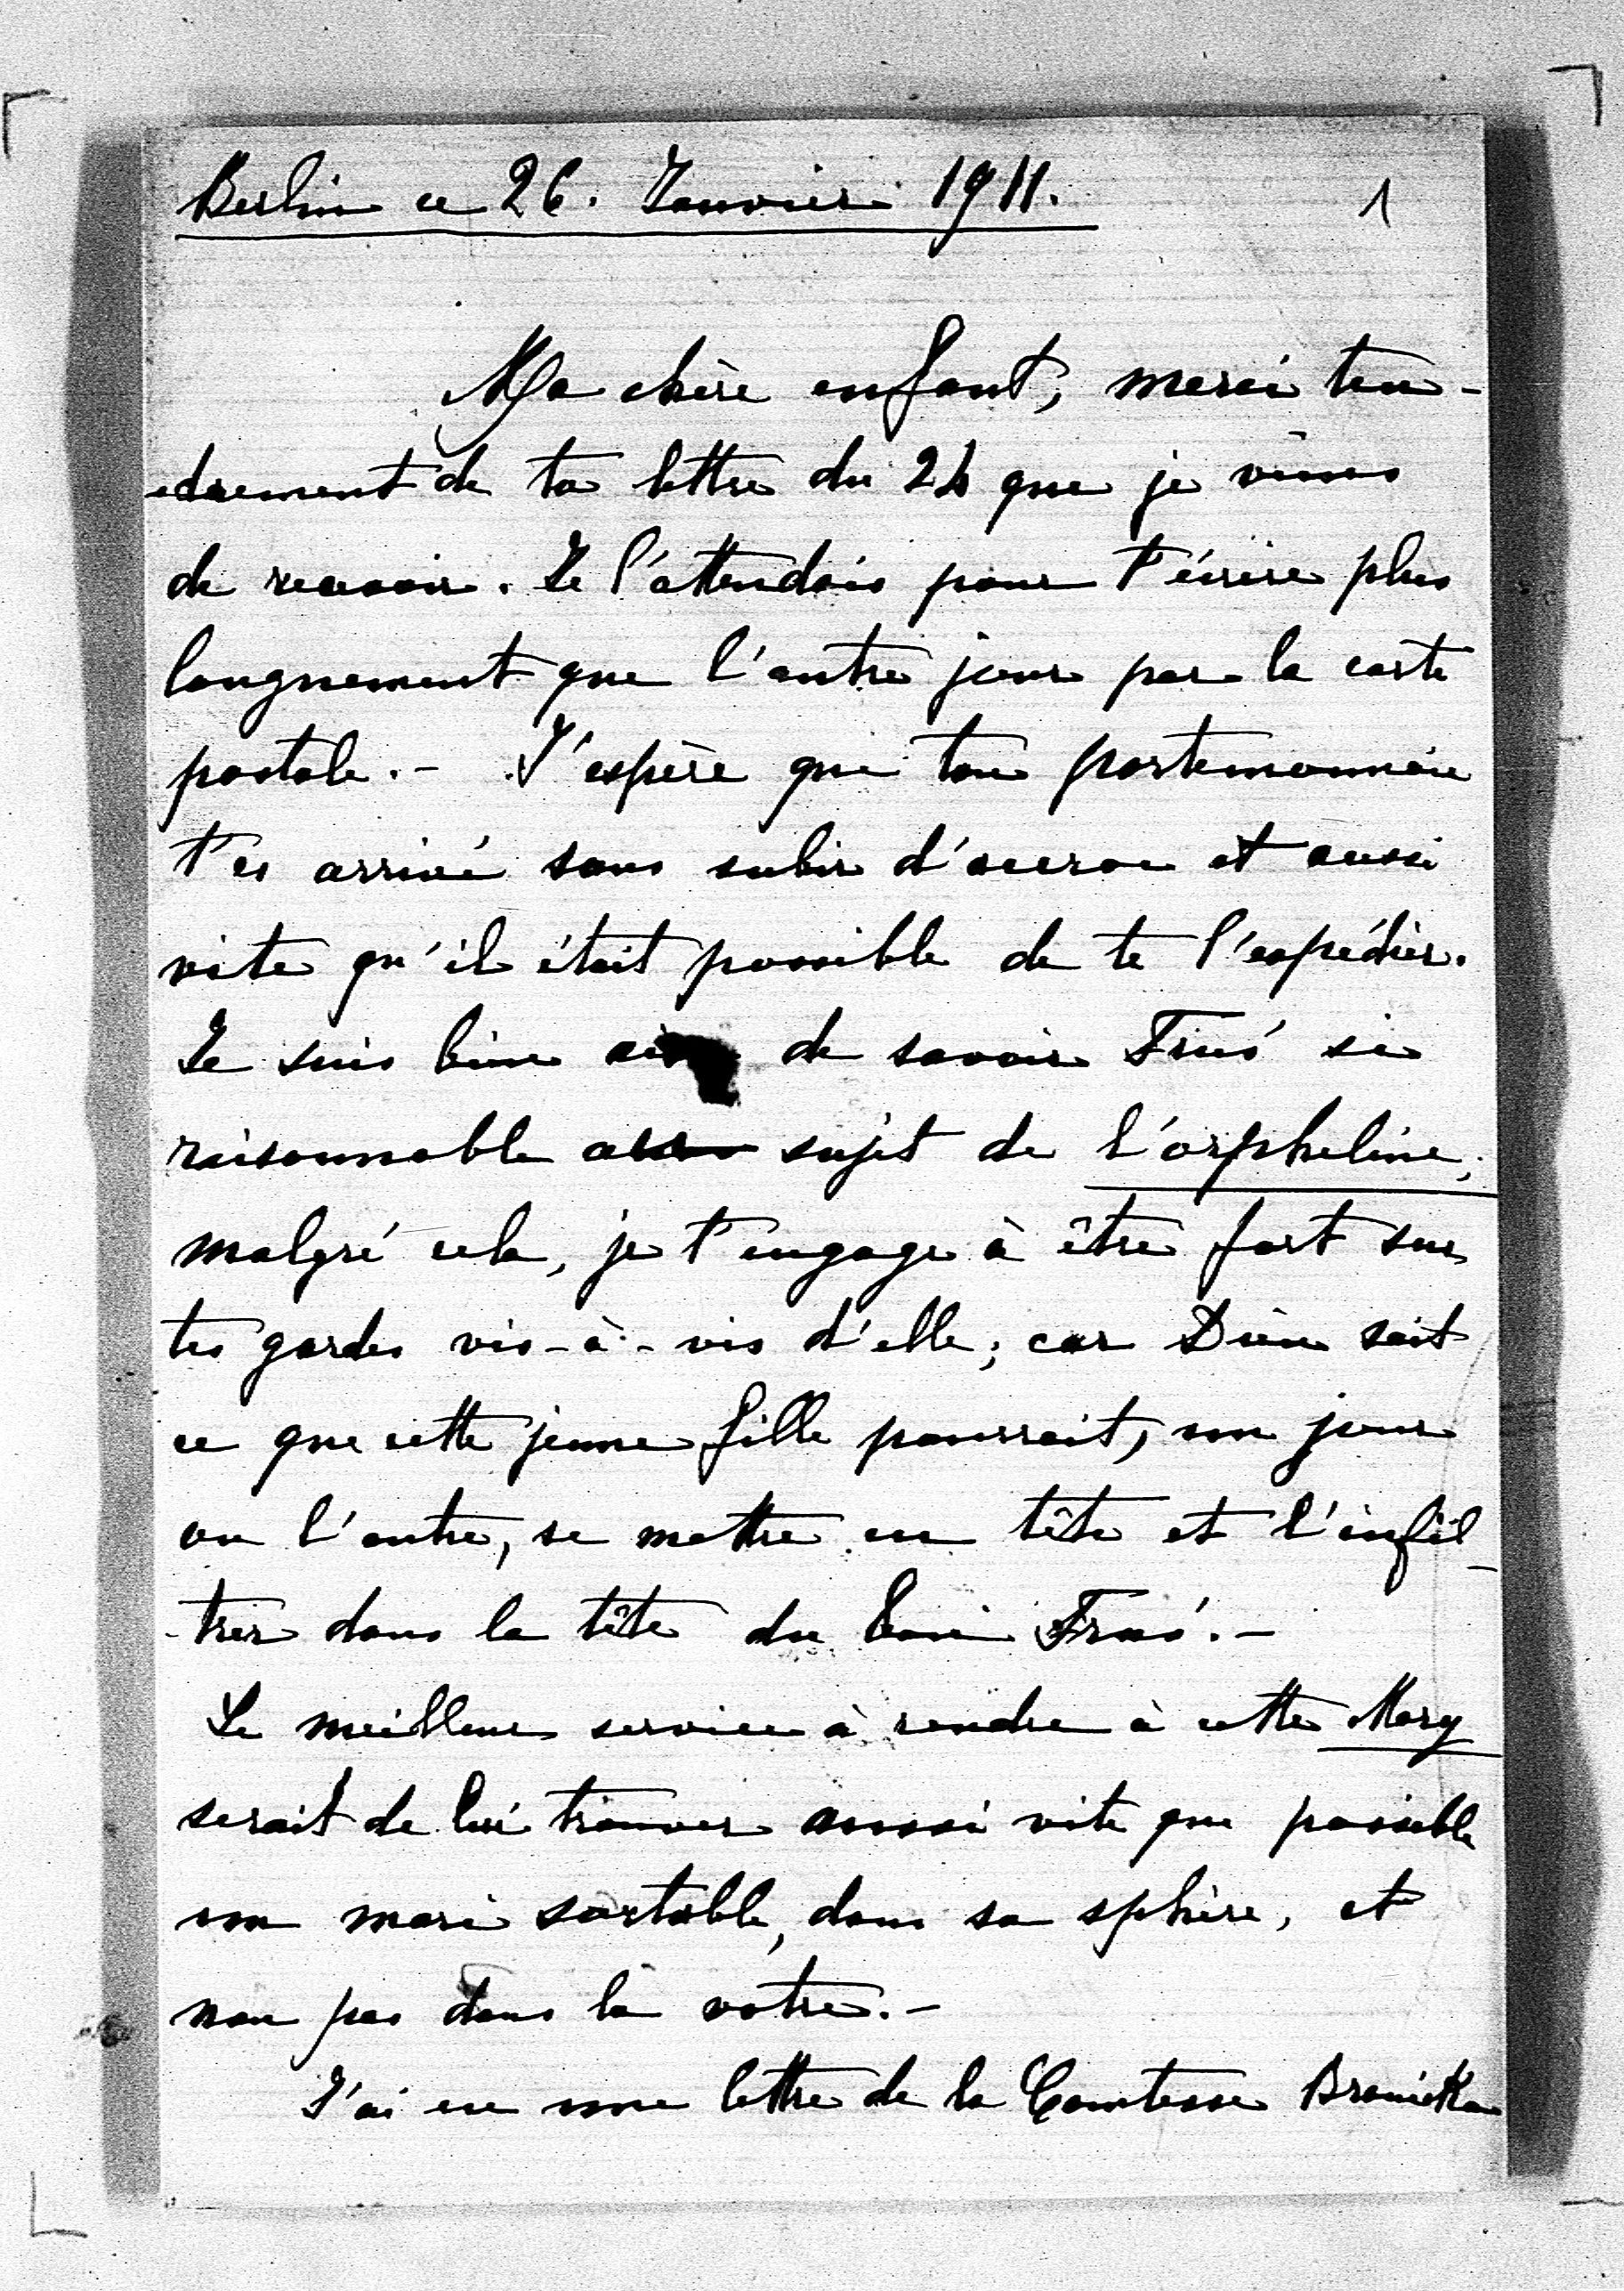 Berlin ce 26. Janvier 1911.
1
Ma chère enfant, merci ten-
-drement de ta lettre du 24 que je viens
de recevoir. Je l'attendais pour t'écrire plus
longuement que l'autre jour par la carte
postale.- J'espère que ton portemonnaie
t'es arrivé sans subir d'accroc et aussi
vite qu'il était possible de te l'expédier.
Je suis bien de savoir si
raisonnable au sujet de l'orpheline;
malgré cela, je t'engage à être fort sur
tes gardes vis-à-vis d'elle; car Dieu sait
ce que cette jeune fille pourrait, un jour
ou l'autre, se mettre en tête et l'infil-
-trer dans la tête du bon .-
Le meilleur service à rendre à cette Mary
serait de lui trouver aussi vite que possible
un mari sortable, dans sa sphère, et
non pas dans la votre.-
J'ai eu une lettre de la Comtesse Branicka